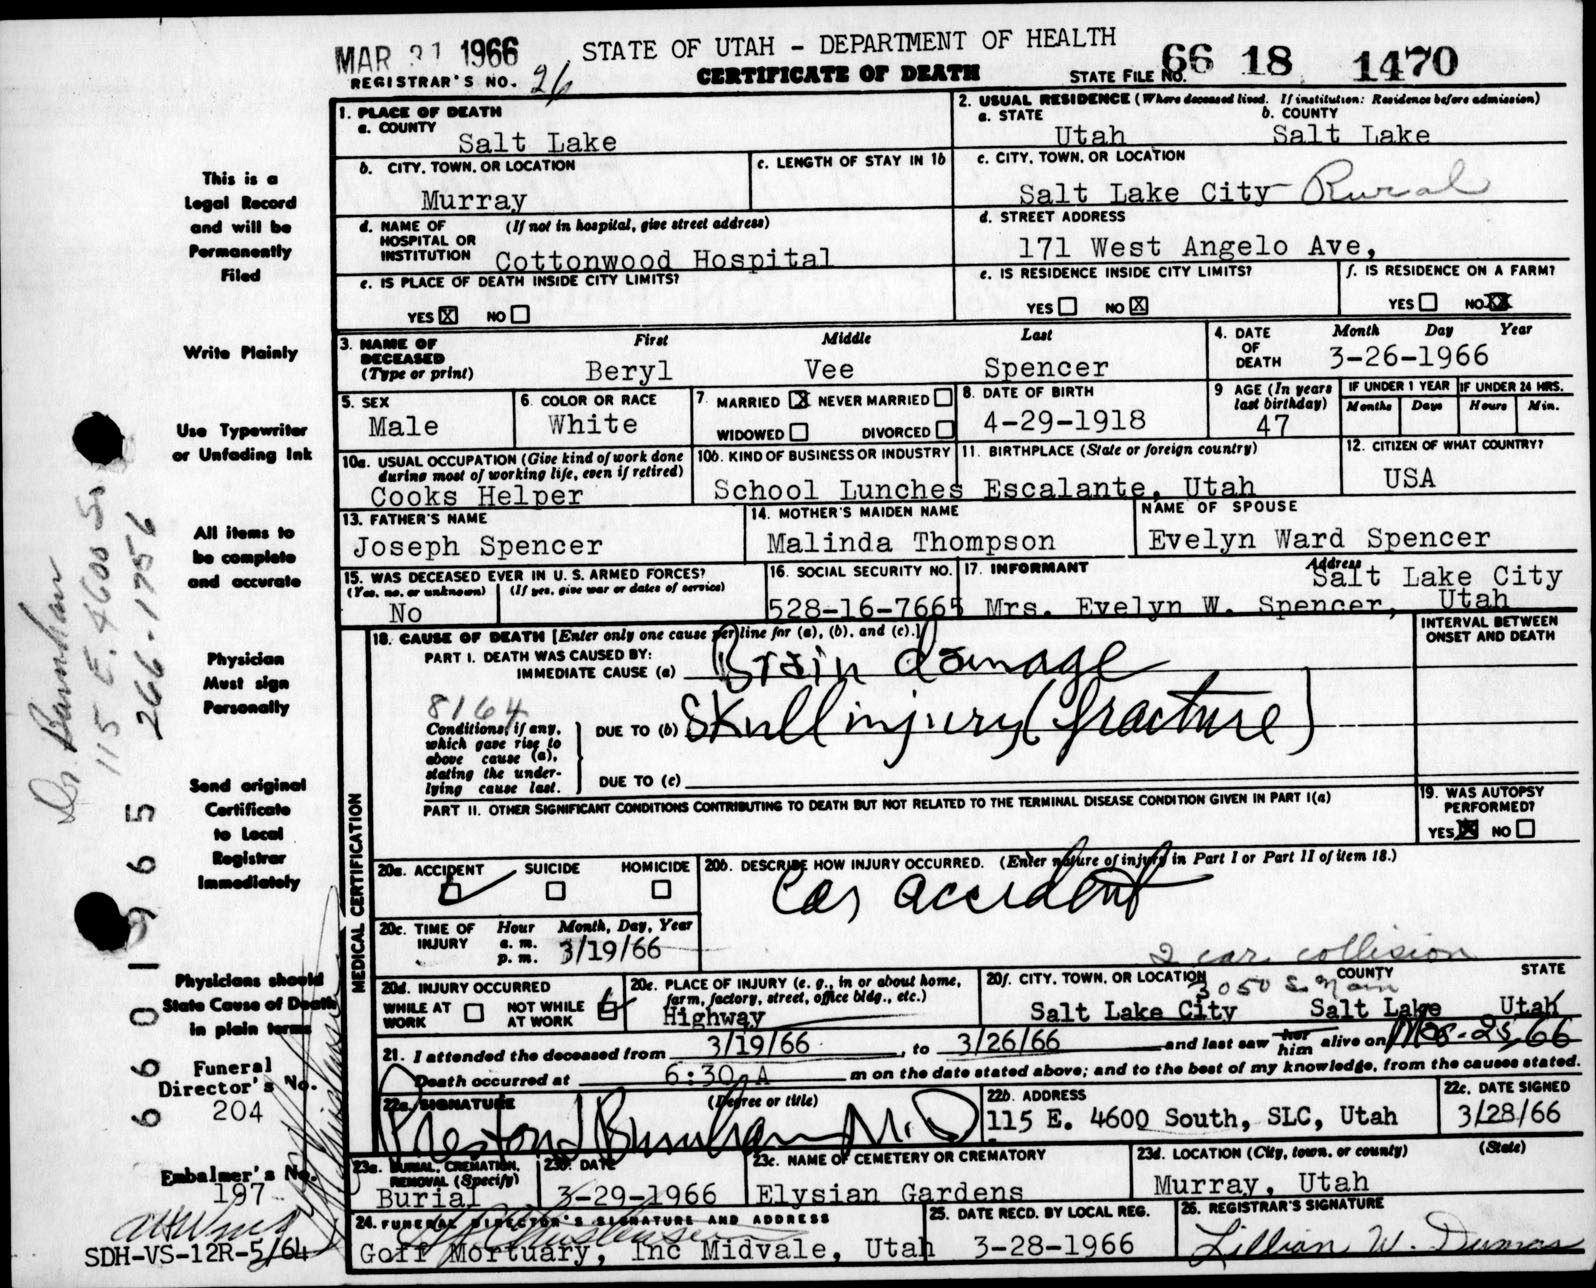 MAR 31 1966 STATE OF UTAH - DEPARTMENT OF HEALTH 66 18 1470
REGISTRAR'S NO. 26 CERTIFICATE OF DEATH STATE FILE NO.
1. PLACE OF DEATH
a. COUNTY
Salt Lake
2. USUAL RESIDENCE (Where deceased lived. If institution: Residence before admission)
a. STATE b. COUNTY
Utah Salt Lake
b. CITY, TOWN, OR LOCATION
Murray
c. LENGTH OF STAY IN 1b
c. CITY, TOWN, OR LOCATION
Salt Lake City Rural
d. NAME OF HOSPITAL OR INSTITUTION (If not in hospital, give street address)
Cottonwood Hospital
d. STREET ADDRESS
171 West Angelo Ave,
e. IS PLACE OF DEATH INSIDE CITY LIMITS?
YES X NO
e. IS RESIDENCE INSIDE CITY LIMITS?
YES NO X
f. IS RESIDENCE ON A FARM?
YES NO XX
3. NAME OF DECEASED (Type or print)
First Middle Last
Beryl Vee Spencer
4. DATE OF DEATH
Month Day Year
3-26-1966
5. SEX
Male
6. COLOR OR RACE
White
7. MARRIED X NEVER MARRIED
WIDOWED DIVORCED
8. DATE OF BIRTH
4-29-1918
9 AGE (In years last birthday)
47
IF UNDER 1 YEAR IF UNDER 24 HRS.
Months Days Hours Min.
10a. USUAL OCCUPATION (Give kind of work done during most of working life, even if retired)
Cooks Helper
10b. KIND OF BUSINESS OR INDUSTRY
School Lunches
11. BIRTHPLACE (State or foreign country)
Escalante, Utah
12. CITIZEN OF WHAT COUNTRY?
USA
13. FATHER'S NAME
Joseph Spencer
14. MOTHER'S MAIDEN NAME
Malinda Thompson
NAME OF SPOUSE
Evelyn Ward Spencer
15. WAS DECEASED EVER IN U. S. ARMED FORCES?
(Yes, no, or unknown) (If yes, give war or dates of service)
No
16. SOCIAL SECURITY NO.
528-16-7665
17. INFORMANT Address
Mrs. Evelyn W. Spencer, Salt Lake City Utah
MEDICAL CERTIFICATION
18. CAUSE OF DEATH [Enter only one cause per line for (a), (b), and (c).]
INTERVAL BETWEEN ONSET AND DEATH
PART I. DEATH WAS CAUSED BY:
IMMEDIATE CAUSE (a) Brain damage
8164
Conditions, if any, which gave rise to above cause (a), stating the underlying cause last.
DUE TO (b) Skull injury (fracture)
DUE TO (c)
PART II. OTHER SIGNIFICANT CONDITIONS CONTRIBUTING TO DEATH BUT NOT RELATED TO THE TERMINAL DISEASE CONDITION GIVEN IN PART I(a)
19. WAS AUTOPSY PERFORMED?
YES X NO
20a. ACCIDENT SUICIDE HOMICIDE
20b. DESCRIBE HOW INJURY OCCURRED. (Enter nature of injury in Part I or Part II of item 18.)
Car accident
2 car collision
20c. TIME OF INJURY Hour Month, Day, Year
a. m.
p. m. 3/19/66
20d. INJURY OCCURRED
WHILE AT WORK NOT WHILE AT WORK
20e. PLACE OF INJURY (e. g., in or about home, farm, factory, street, office bldg., etc.)
Highway
20f. CITY, TOWN, OR LOCATION COUNTY STATE
3050 S. Main
Salt Lake City Salt Lake Utah
21. I attended the deceased from 3/19/66, to 3/26/66 and last saw her him alive on Mar-25 66
Death occurred at 6:30 A m on the date stated above; and to the best of my knowledge, from the causes stated.
22a. SIGNATURE (Degree or title)
Preston J Burnham M.D
22b. ADDRESS
115 E. 4600 South, SLC, Utah
22c. DATE SIGNED
3/28/66
23a. BURIAL, CREMATION, REMOVAL (Specify)
Burial
23b. DATE
3-29-1966
23c. NAME OF CEMETERY OR CREMATORY
Elysian Gardens
23d. LOCATION (City, town, or county) (State)
Murray, Utah
24. FUNERAL DIRECTOR'S SIGNATURE AND ADDRESS
Goff Mortuary, Inc Midvale, Utah
25. DATE RECD. BY LOCAL REG.
3-28-1966
26. REGISTRAR'S SIGNATURE
Lillian W. Dumas
This is a
Legal Record
and will be
Permanently
Filed
Write Plainly
Use Typewriter
or Unfading Ink
All items to
be complete
and accurate
Physician
Must sign
Personally
Send original
Certificate
to Local
Registrar
Immediately
Physicians should
State Cause of Death
in plain terms
Funeral
Director's No.
204
Embalmer's No.
197
SDH-VS-12R-5/64
Dr. Burnham
115 E. 4600 So
266-1756
66 01 965